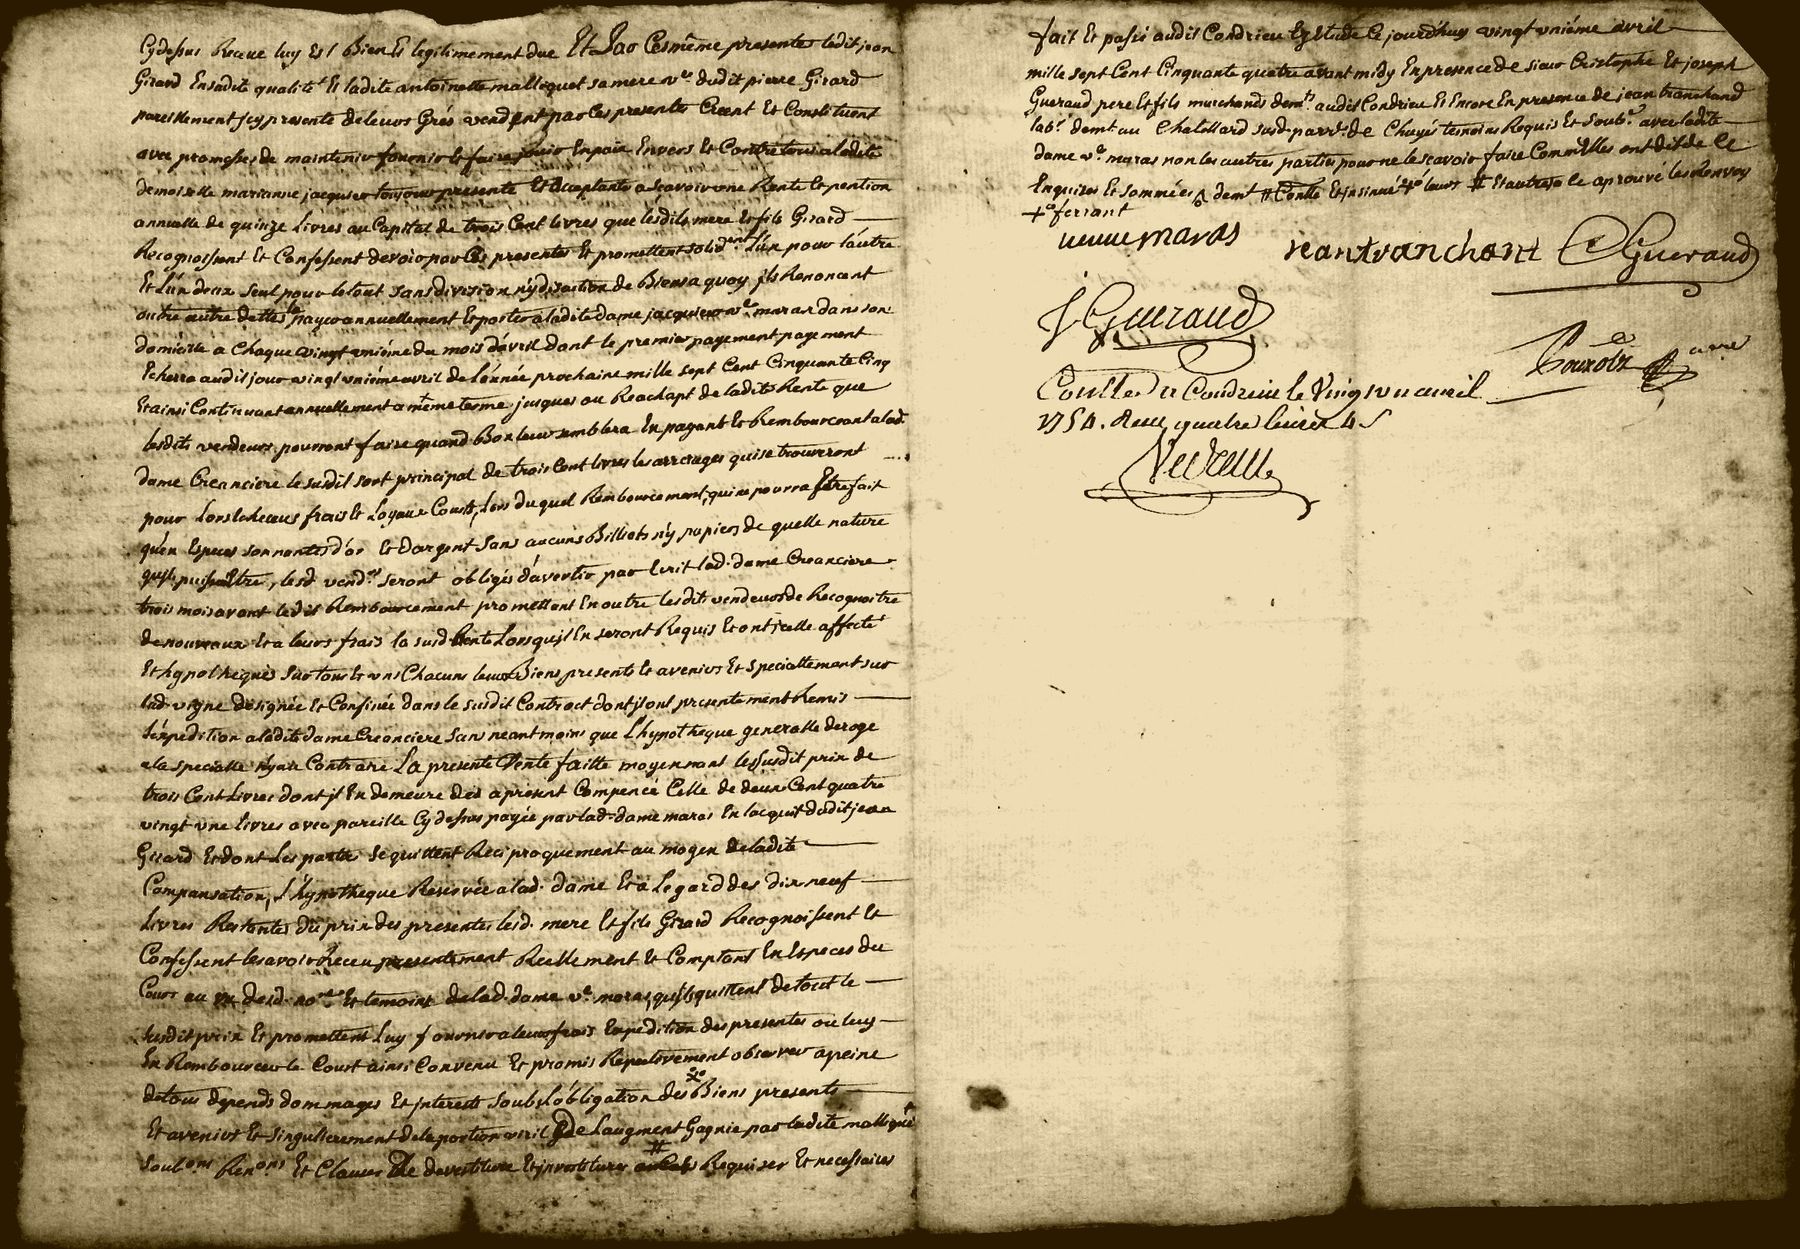 Cydessus Receue luy Est Bien Et legitimement due Et Par Ces même presentes ledit jean
Girard En sadite qualité Et ladite antoinette malloquet sa mere v.e dudit pierre Girard
pareillement jcy presente de leurs Grés vendent par Ces presentes Creent Et Constituent
avec promesses de maintenir fournir Et faire jouir En paix Envers Et Contre tous a ladite
demoiselle marianne jacquier toujours presente Et acceptante a scavoir une Rente Et pention
annuelle de quinze Livres au Capital de trois Cent livres que lesdits mere Et fils Girard
Recognoissent Et Confessent devoir par Ces presentes Et promettent solid.ent L'un pour l'autre
Et L'un deux seul pour le tout sans division ny disction de Biens a quoy jls Renoncent
outre autre dette la payer annuellement Et porter a ladite dame jacquier v.e maras dans son
domicille a Chaque vingt unième du mois d'avril dont le premier payement payement
Echerra audit jour vingt unième avril de l'année prochaine mille sept Cent Cinquante Cinq
Et ainsi Continuant annuellement a même terme jusques au Reachapt de ladite Rente que
lesdits vendeurs pourront faire quand Bon leur semblera En payant Et Rembourceant a lad.
dame Creanciere le susdit sort principal de trois Cent livres les arrerages qui se trouveront
pour Lors Echeus frais Et Loyaux Couts, Lors du quel Rembourcement, qui ne pourra Etre fait
qu'en Especes sonnantes d'or Et D'argent Sans aucuns Billiets n'y papiers de quelle nature
qu'jls puissent Etre, lesd. vend.rs seront obligés d'avertir par Ecrit lad. dame Creanciere
trois mois avant ledit Rembourcement promettant En outre lesdits vendeurs de Recognoitre
de nouveaux Et a leurs frais la susd. Rente Lorsqu'jl En seront Requis Et ont jcelle affecté
Et hypothequés Sur tous Et uns Chacuns leurs Biens presents Et avenirs Et speciallement sur
lad. vigne designée Et Confinée dans le susdit Contract dont jl ont presentement Remis
l'expedition a ladite dame Creanciere San neantmoins que L'hypotheque generalle deroge
a la specialle n'y au Contraire La presente Vente faitte moyennant le susdit prix de
trois Cent Livres dont jl En demeure des a present Compencé Celle de deux Cent quatre
vingt une Livres avec pareille Cy dessus payée par lad. dame maras En lacquit dudit jean
Girard Et dont Les parties se quittent Reciproquement au moyen de ladite
Compansation, L'hypotheque Reservée a lad. dame Et a L'egard des dix neuf
Livres Restantes du prix des presentes lesd. mere Et fils Girard Recognoissent Et
Confessent les avoir Receu presentement Reellement Et Comptant En Especes du
Cours au vu desd. no.res Et temoins de lad. dame v.e maras, qu'jls quittent de tout le
susdit prix Et promettent Luy fournir a leurs frais Expedition des presentes ou luy
En Rembourcer le Coust ainsi Convenu Et promis Repectivement observer a peine
de tous depends dommages Et jnterests Soubs L'obligation des Biens presents
Et avenirs Et singulierement de la portion viril de L'augment Gagnie par ladite malloquet
Soub.ons Ren.ons Et Clauses De devestiture Et jnvestitures Requises Et necessaires
fait Et passé audit Condrieu Estude Ce jourd'huy vingt unième avril
mille sept Cent Cinquante quatre avant midy En presence de sieur Cristophe Et joseph
Gueraud pere Et fils marchands dem.ts audit Condrieu Et Encore En presence de jean tranchand
lab.r demt au Chatellard susd. parr.e de Chuyés temoins Requis Et Soub.s avec ladite
dame v.e maras non les autres parties pour ne le scavoir faire Comm'Elles ont dit de Ce
Enquises Et sommées demt # Contle Et jnsinué leurs # Et autres a Ce aprouvé les Renvoy
ferrant
veuve maras jean tranchant C Gueraud
J. Gueraud
Conttle. a Condrieu le Vingt un avril
1754. Recu quatre livres 4 s